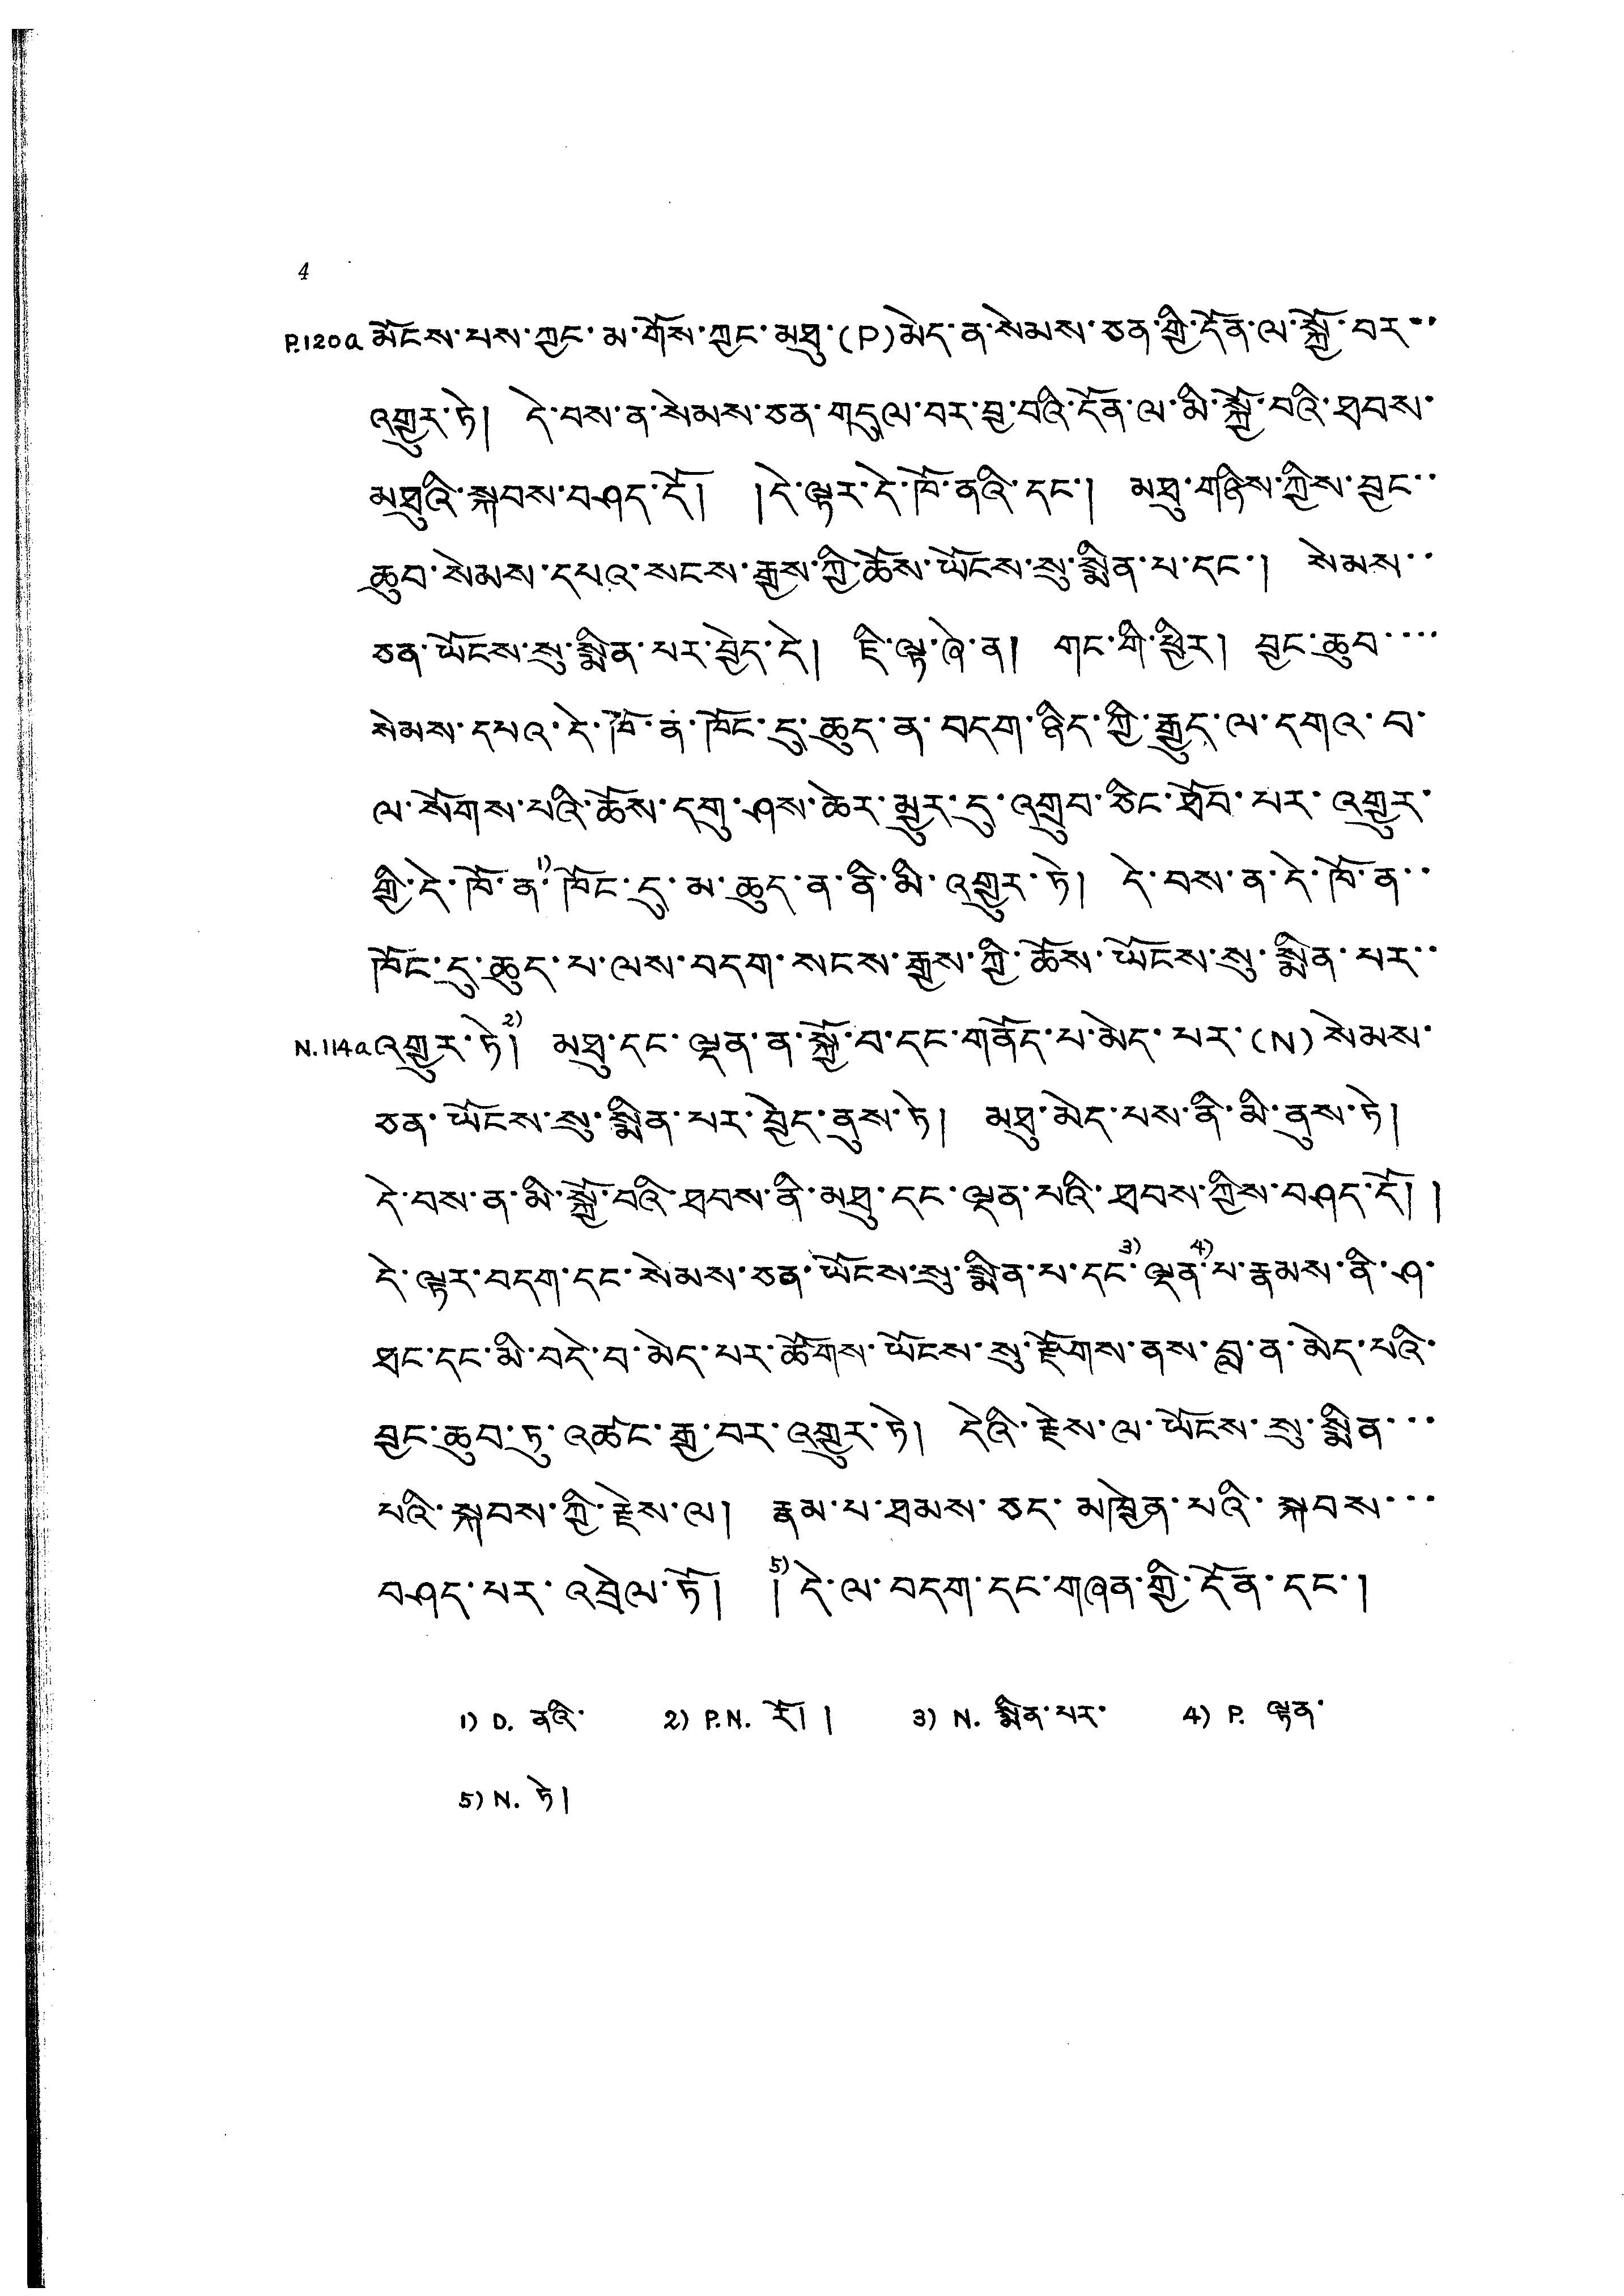 4
P.120a མོངས་པས་ཀྱང་མ་གོས་ཀྱང་མཐུ་(P)མེད་ན་སེམས་ཅན་གྱི་དོན་ལ་སྐྱོ་བར་་
འགྱུར་ཏེ། དེ་བས་ན་སེམས་ཅན་གདུལ་བར་བྱ་བའི་དོན་ལ་མི་སྐྱོ་བའི་ཐབས་
མཐུའི་སྐབས་བཤད་དོ། །དེ་ལྟར་དེ་ཁོ་ནའི་དང་། མཐུ་གཉིས་ཀྱིས་བྱང་་
ཆུབ་སེམས་དཔའ་སངས་རྒྱས་ཀྱི་ཆོས་ཡོངས་སུ་སྨིན་པ་དང་། སེམས་་
ཅན་ཡོངས་སུ་སྨིན་པར་བྱེད་དེ། ཇི་ལྟ་ཞེ་ན། གང་གི་ཕྱིར། བྱང་ཆུབ་་་་
སེམས་དཔའ་དེ་ཁོ་ན་ཁོང་དུ་ཆུད་ན་བདག་ཉིད་ཀྱི་རྒྱུད་ལ་དགའ་བ་
ལ་སོགས་པའི་ཆོས་དགུ་ཤས་ཆེར་མྱུར་དུ་འགྲུབ་ཅིང་ཐོབ་པར་འགྱུར་
གྱི་དེ་ཁོ་ན་1)ཁོང་དུ་མ་ཆུད་ན་ནི་མི་འགྱུར་ཏེ། དེ་བས་ན་དེ་ཁོ་ན་་
ཁོང་དུ་ཆུད་པ་ལས་བདག་སངས་རྒྱས་ཀྱི་ཆོས་ཡོངས་སུ་སྨིན་པར་་
N.114a འགྱུར་ཏེ།2) མཐུ་དང་ལྡན་ན་སྐྱོ་བ་དང་གནོད་པ་མེད་པར་(N)སེམས་
ཅན་ཡོངས་སུ་སྨིན་པར་བྱེད་ནུས་ཏེ། མཐུ་མེད་པས་ནི་མི་ནུས་ཏེ།
དེ་བས་ན་མི་སྐྱོ་བའི་ཐབས་ནི་མཐུ་དང་ལྡན་པའི་ཐབས་ཀྱིས་བཤད་དོ། །
དེ་ལྟར་བདག་དང་སེམས་ཅན་ཡོངས་སུ་སྨིན་པ་དང་3)ལྡན་4)པ་རྣམས་ནི་ཤ་
ཐང་དང་མི་བདེ་བ་མེད་པར་ཚོགས་ཡོངས་སུ་རྫོགས་ནས་བླ་ན་མེད་པའི་
བྱང་ཆུབ་ཏུ་འཚང་རྒྱ་བར་འགྱུར་ཏེ། དེའི་རྗེས་ལ་ཡོངས་སུ་སྨིན་་་
པའི་སྐབས་ཀྱི་རྗེས་ལ། རྣམ་པ་ཐམས་ཅད་མཁྱེན་པའི་སྐབས་་་
བཤད་པར་འབྲེལ་ཏོ། །5)དེ་ལ་བདག་དང་གཞན་གྱི་དོན་དང་།
1) D. ནའི་ 2) P.N. རོ། ། 3) N. སྨིན་པར་ 4) P. ལྟན་
5) N. ཏེ།